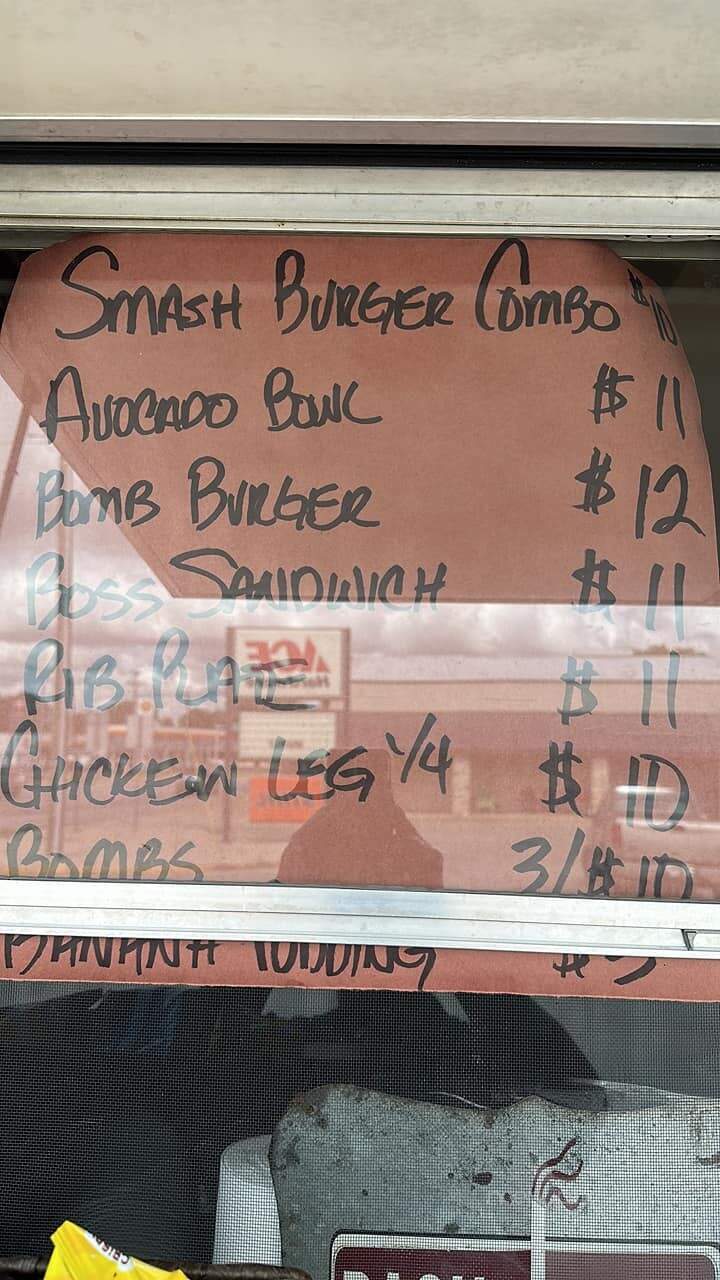 SMASH BURGER COMBO $10
AVOCADO BOWL $ 11
BOMB BURGER $ 12
BOSS SANDWICH $ 11
RIB PLATE $ 11
CHICKEN LEG 1/4 $ 10
BOMBS 3/$10
BANANA PUDDING
ACE